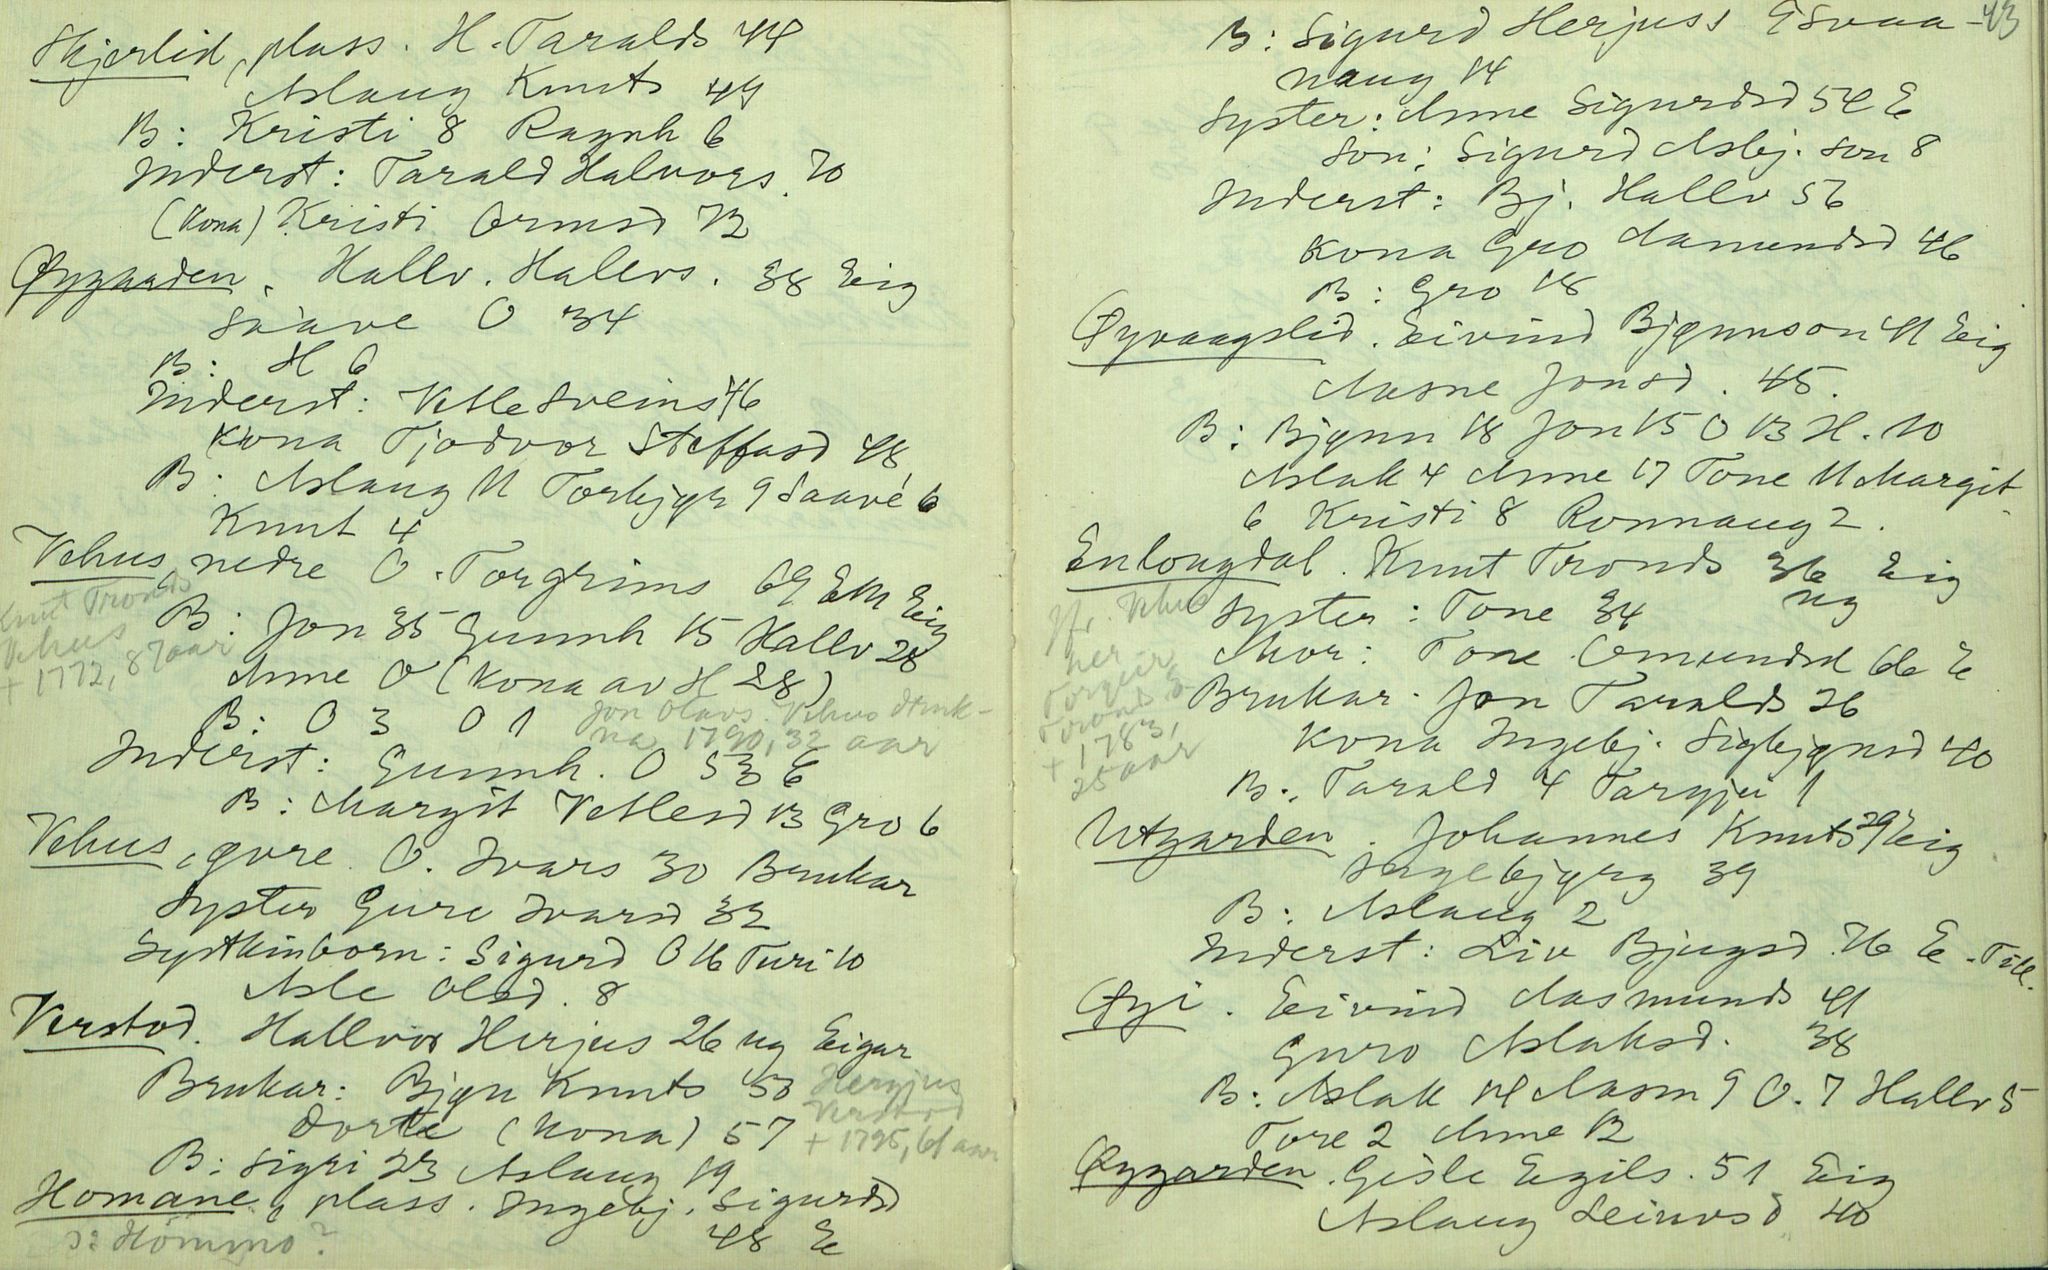 Skjerlid, plass. H. Taralds 44
Aslaug Knuts 49
B: Kristi 8 Ragnh 6
Inderst: Tarald Halvors. 70
(Kona) Kristi Ormsd 72
Øygarden. Hallv. Hallvs. 38 Eig
Saave O 34
B: H 6
Inderst: Vetle Sveins 46
Kona Tjodvor Steffasd 48
B: Aslaug 11 Torbjør 9 Saave 6
Knut 4
Vehus, nedre O. Torgrims 69 Em Eig
Knut Tronds
Vehus
+ 1772, 87 aar
B: Jon 35 Gunnh 15 Hallv 28
Anne O (Kona av H 28)
B: O 3 O 1
Jon Olavs. Vehus druk-
na 1790, 32 aar
Inderst: Gunnh. O 53 E
B: Margit Vetlesd 13 Gro 6
Vehus, øvre. O. Ivars 30 Brukar
Syster Gure Ivarsd 32
Systkinborn: Sigurd O 16 Turi 10
Asle Olsd. 8
Verstod. Hallvor Herjus 26 ug Eigar
Brukar: Bjøn Knuts 53
Dorte (Kona) 57
Herjus
Verstod
+ 1795, 61 aar
B: Sigri 23 Aslaug 19
Homane, plass. Ingebj. Sigurdsd
48 E
Hommo?
43
B: Sigurd Herjuss 9 Svaa-
naug 14
Syster: Anne Sigurdsd 54 E
Son: Sigurd Asbj. son 8
Inderst: Bj. Hallv 56
Kona Gro Aamundsd 46
B: Gro 18
Øyvaagslid. Eivind Bjønnson 41 Eig
Aasne Jonsd. 45.
B: Bjønn 18 Jon 15 O 13 H. 10
Aslak 4 Anne 17 Tone 11 Margit
6 Kristi 8 Ronnaug 2.
Enlougdal. Knut Tronds 36 Eig
ug
Syster: Tone 34
Jfr. Vehus
her
Torgeir
Tronds
+ 1783,
25 aar
Mor: Tone Omundsd 66 E
Brukar. Jon Taralds 26
Kona Ingebj. Sigbjønsd 40
B: Tarald 4 Targju 1
Utgarden. Johannes Knuts 29 Eig
Ingebjørg 39
B: Aslaug 2
Inderst: Liv Bjugsd. 76 E. Till.
Øyi. Eivind Aasmunds 41
Guro Aslaksd. 38
B: Aslak 14 Aasm 9 O. 7 Hallv 5
Tore 2 Anne 12
Øygarden. Gisle Egils. 51 Eig
Aslaug 40